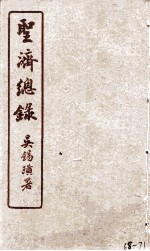 聖濟總錄
吳錫璜署
68-71